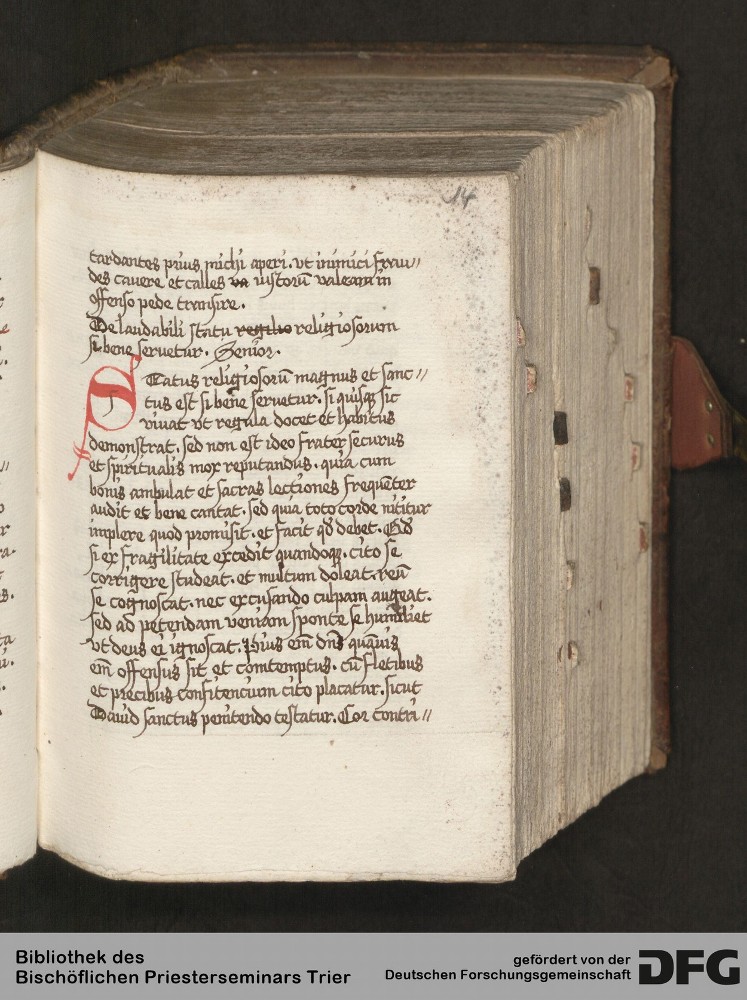 14
tardantes prius michi aperi. vt inimici frau//
des cauere et calles va iustorū valeam in
offenso pede transire.
De laudabili statu regilio religiosorum
si bene seruetur. Senior.
STatus religiosorū magnus et sanc//
tus est si bene seruetur. si quisq̢ sic
viuat vt regula docet et habitus
demonstrat. sed non est ideo frater securus
et spiritualis mox reputandus. quia cum
bonis ambulat et sacras lectiones frequēter
audit et bene cantat. sed quia toto corde nititur
implere quod promisit. et facit qd̄ debet. Qd̄
si ex fragilitate excedit quandoq̢. cito se
corrigere studeat. et multum doleat. reū
se cognoscat. nec excusando culpam augeat.
sed ad petendam veniam sponte se humiliet
vt deus ei ignoscat. Pius em̄ dn̄s quāuis
em̄ offensus sit et comtemptus. cū fletibus
et precibus confitencium cito placatur. sicut
Dauid sanctus penitendo testatur. Cor contri//
Bibliothek des
Bischöflichen Priesterseminars Trier
gefördert von der
Deutschen Forschungsgemeinschaft
DFG